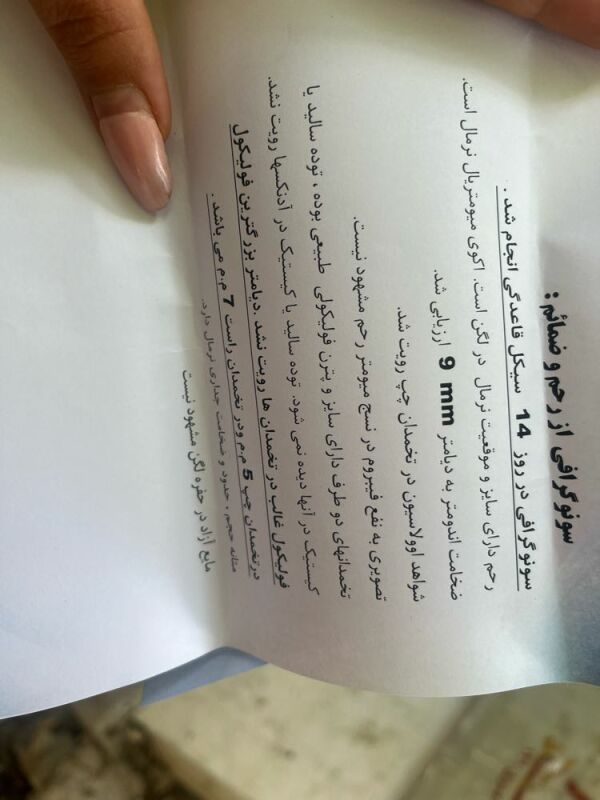 سونوگرافی از رحم و ضمائم :
سونوگرافی در روز 14 سیکل قاعدگی انجام شد .
رحم دارای سایز و موقعیت نرمال در لگن است. اکوی میومتریال نرمال است.
ضخامت اندومتر به دیامتر 9 mm ارزیابی شد.
شواهد اوولاسیون در تخمدان چپ رویت شد.
تصویری به نفع فیبروم در نسج میومتر رحم مشهود نیست.
تخمدانهای دو طرف دارای سایز و پترن فولیکولی طبیعی بوده ، توده سالید یا
کیستیک در آنها دیده نمی شود. توده سالید یا کیستیک در آدنکسها رویت نشد.
فولیکول غالب در تخمدان ها رویت نشد .دیامتر بزرگترین فولیکول
درتخمدان چپ 5 م.م ودر تخمدان راست 7 م.م می باشد .
مثانه حجم ، حدود و ضخامت جداری نرمال دارد.
مایع آزاد در حفره لگن مشهود نیست